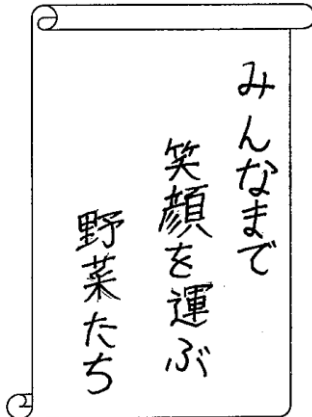 みんなまで
笑顔を運ぶ
野菜たち